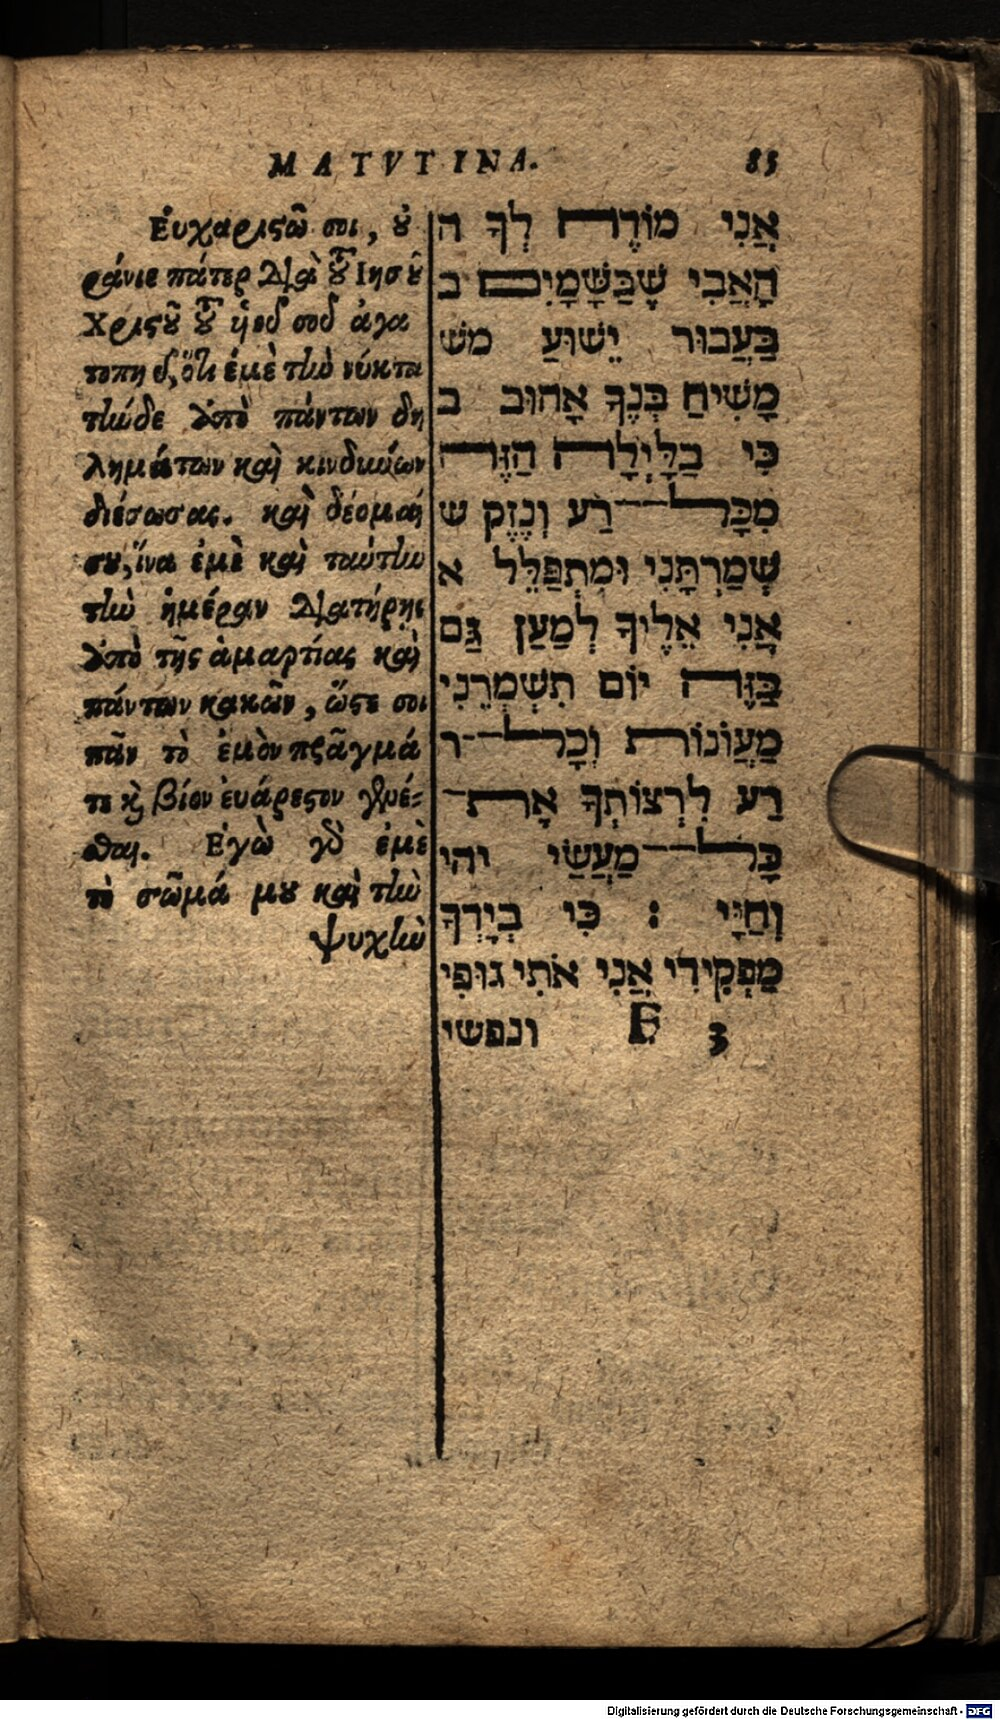 MATVTINA. 85
Εὐχαριστῶ σοι, οὐ
ράνιε πάτερ διὰ τοῦ Ιησοῦ
Χριστοῦ τοῦ ἡοῦ σοῦ ἀγα
τοπη οῦ, ὅτι ἐμὲ τὴν νύκτα
τήνδε ἀπὸ πάντων δη
λημάτων καὶ κινδιώων
διέσωσας. καὶ δέομαί
σου, ἵνα ἐμὲ καὶ ταύτην
τὴν ἡμέραν διατήρης
ἀπὸ τῆς ἁμαρτίας καὶ
πάντων κακῶν, ὥστε σοι
πᾶν τὸ ἐμὸν πρᾶγμά
τε καὶ βίον ἐυάρεστον γενέ-
σθαι. Εγὼ γὰρ ἐμὲ
τὸ σῶμά μου καὶ τὴν
ψυχὴν
אֲנִי מוֹדֶה לְךָ ה
הָאֲבִי שֶׁבַּשָּׁמָיִם ב
בַּעֲבוּר יֵשׁוּעַ מש
מָשִׁיחַ בְּנֶךָ אָהוּב ב
כִּי בַלָּיְלָה הַזֶּה
מִכָּל רַע וְנֶזֶק ש
שְׁמַרְתָּנִי וּמִתְפַּלֵּל א
אֲנִי אֵלֶיךָ לְמַעַן גַּם
בַּזֶּה יוֹם תִּשְׁמְרֵנִי
מַעֲוֹנוֹת וְכָל ר
רַע לִרְצוֹתְךָ אָת
כָּל מַעֲשַׂי יהי
וְחַיָּי : כִּי בְיָדְךָ
מַפְקִידִי אֲנִי אֹתִי גוּפִי
F 3 ונפשי